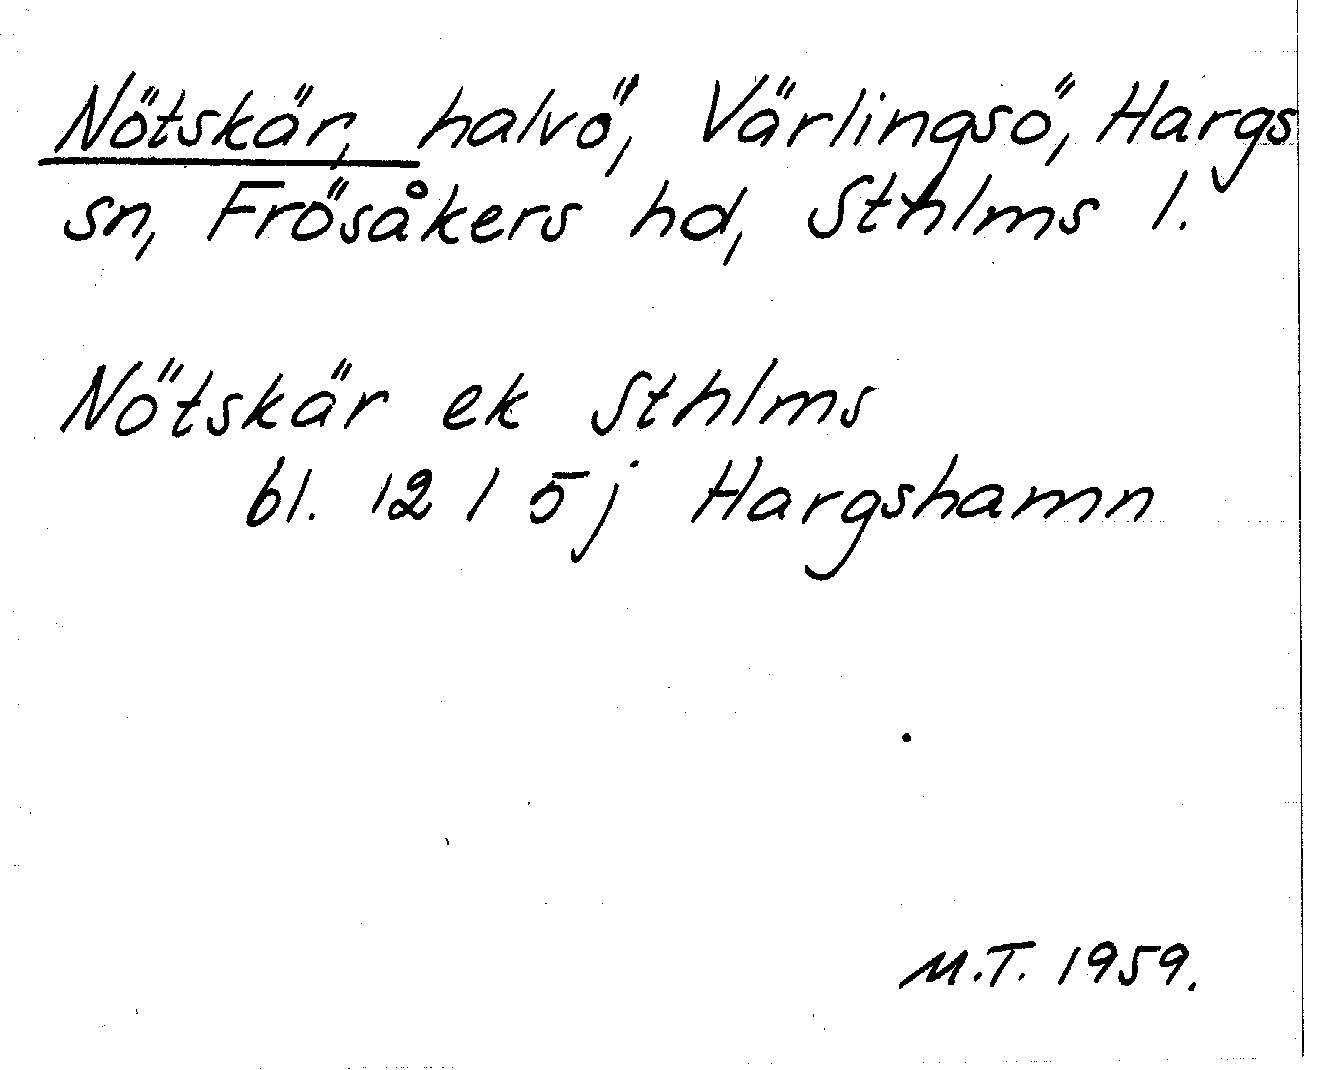 Nötskär, halvö, Värlingsö, Hargs
sn, Frösåkers hd, Sthlms l.
Nötskär ek Sthlms
bl. 12 I 5j Hargshamn
M.T. 1959.